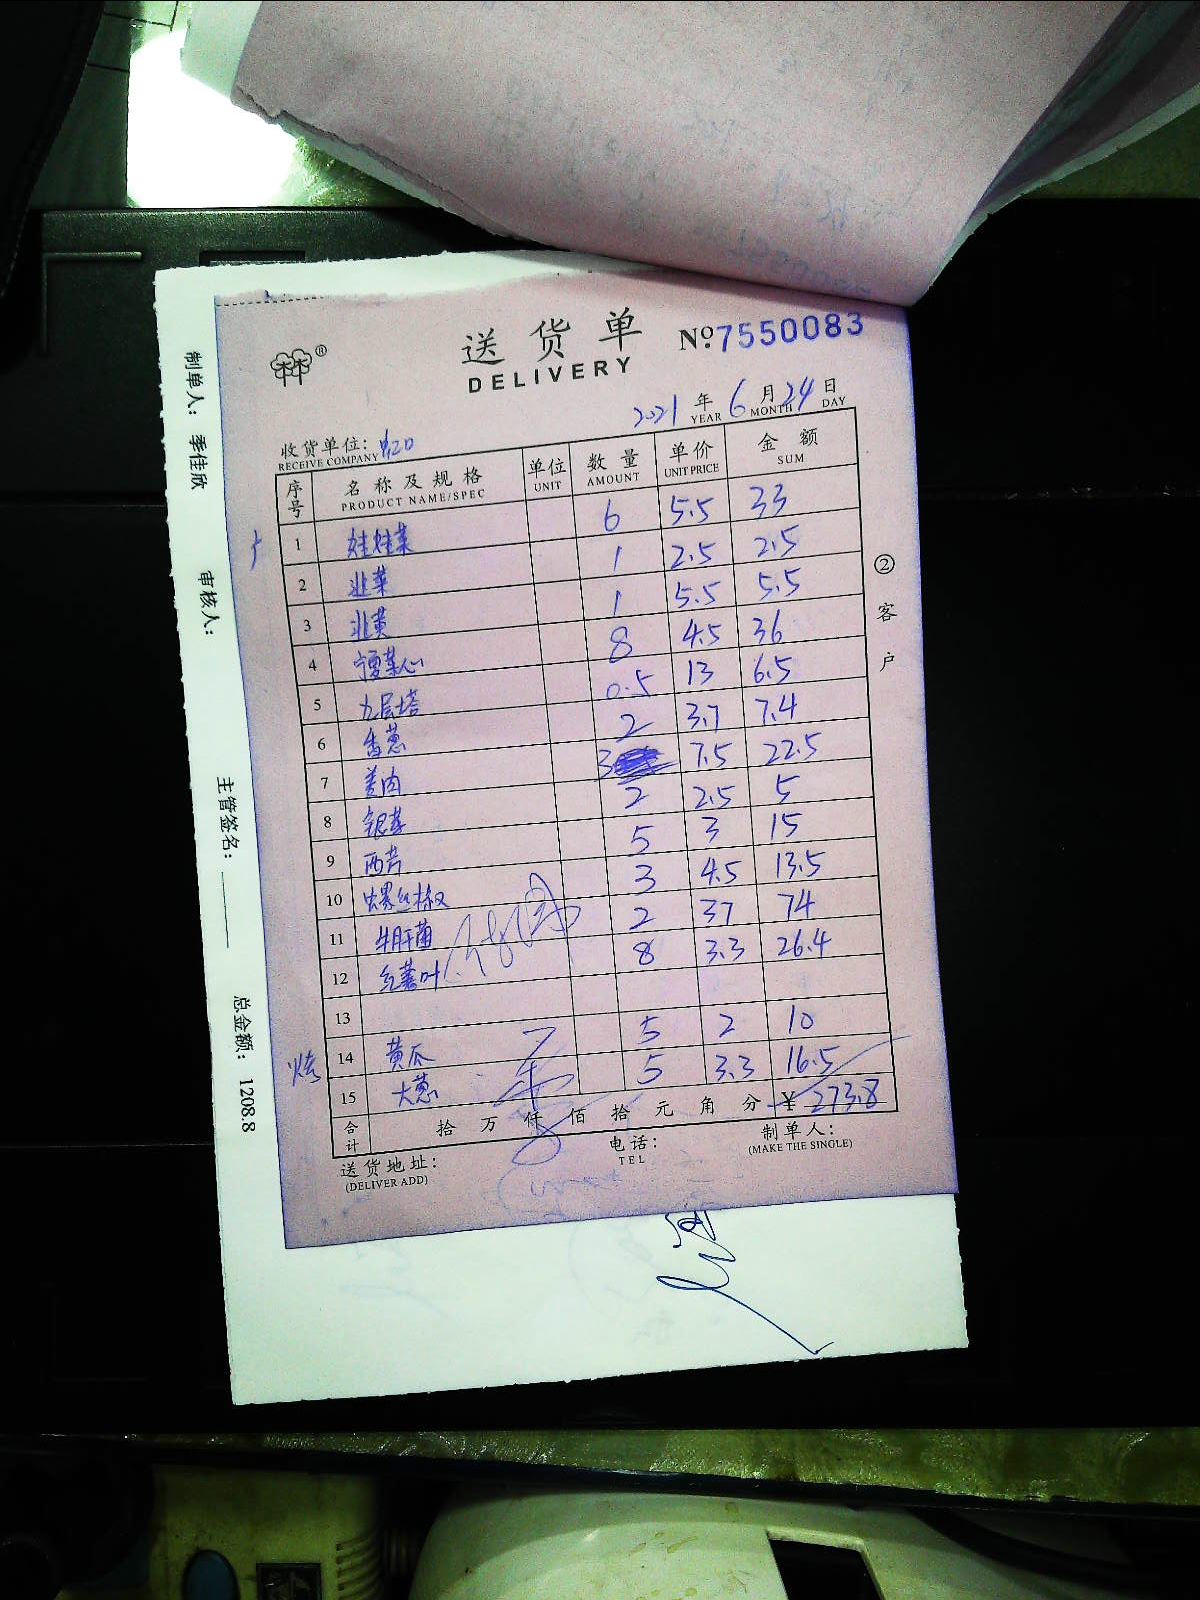 送货单
DELIVERY
№ 7550083
2021 年 6 月 24 日
YEAR MONTH DAY
收货单位:
RECEIVE COMPANY
序号 名称及规格 单位 数量 单价 金额
PRODUCT NAME/SPEC UNIT AMOUNT UNIT PRICE SUM
1 娃娃菜 6 5.5 33
2 韭菜 1 2.5 2.5
3 韭黄 1 5.5 5.5
4 宁夏菜心 8 4.5 36
5 九层塔 0.5 13 6.5
6 香葱 2 3.7 7.4
7 姜肉 3 7.5 22.5
8 银芽 2 2.5 5
9 西芹 5 3 15
10 螺丝椒 3 4.5 13.5
11 牛肝菌 2 37 74
12 红薯叶 8 3.3 26.4
13
14 黄瓜 5 2 10
15 大葱 5 3.3 16.5
合计 拾 万 仟 佰 拾 元 角 分 ¥ 273.8
送货地址: 电话: 制单人:
(DELIVER ADD) TEL (MAKE THE SINGLE)
②客户
制单人: 季佳欣 审核人: 主管签名: 总金额: 1208.8